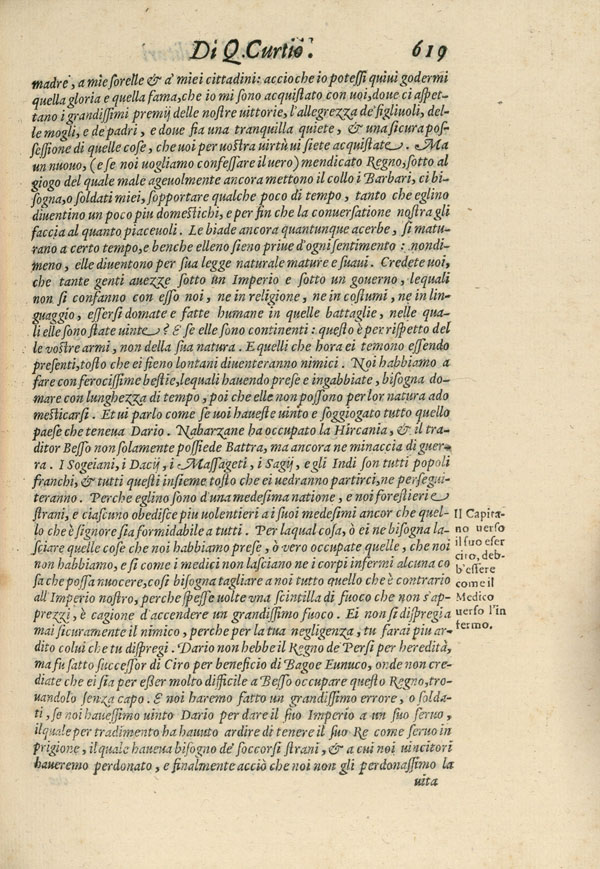 Di Q. Curtio. 619
madre, a mie sorelle & a' miei cittadini: accioche io potessi quiui godermi
quella gloria e quella fama, che io mi sono acquistato con uoi, doue ci aspet-
tano i grandissimi premij delle nostre uittorie, l'allegrezza de' figliuoli, del-
le mogli, e de padri, e doue fia una tranquilla quiete, & una sicura pos-
sessione di quelle cose, che uoi per uostra uirtù ui siete acquistate. Ma
un nuouo, (e se noi uogliamo confessare il uero) mendicato Regno, sotto al
giogo del quale male ageuolmente ancora mettono il collo i Barbari, ci bi-
sogna, o soldati miei, sopportare qualche poco di tempo, tanto che eglino
diuentino un poco piu domestichi, e per fin che la conuersatione nostra gli
faccia al quanto piaceuoli. Le biade ancora quantunque acerbe, si matu-
rano a certo tempo, e benche elleno sieno priue d'ogni sentimento: nondi-
meno, elle diuentono per sua legge naturale mature e suaui. Credete uoi,
che tante genti auezze sotto un Imperio e sotto un gouerno, lequali
non si confanno con esso noi, ne in religione, ne in costumi, ne in lin-
guaggio, essersi domate e fatte humane in quelle battaglie, nelle qua-
li elle sono state uinte? E se elle sono continenti: questo è per rispetto del
le vostre armi, non della sua natura. E quelli che hora ei temono essendo
presenti, tosto che ei fieno lontani diuenteranno nimici. Noi habbiamo a
fare con ferocissime bestie, lequali hauendo prese e ingabbiate, bisogna do-
mare con lunghezza di tempo, poi che elle non possono per lor natura ado
mesticarsi. Et ui parlo come se uoi haueste uinto e soggiogato tutto quello
paese che teneua Dario. Nabarzane ha occupato la Hircania, & il tra-
ditor Besso non solamente possiede Battra, ma ancora ne minaccia di guer-
ra. I Sogeiani, i Dacij, i Massageti, i Sagij, e gli Indi son tutti popoli
franchi, & tutti questi insieme tosto che ei uedranno partirci, ne persegui-
teranno. Perche eglino sono d'una medesima natione, e noi forestieri e
strani, e ciascuno obedisce piu uolentieri a i suoi medesimi ancor che quel-
lo che è signore sia formidabile a tutti. Per laqual cosa, ò ei ne bisogna la-
sciare quelle cose che noi habbiamo prese, ò vero occupate quelle, che noi
non habbiamo, e si come i medici non lasciano ne i corpi infermi alcuna co
sa che possa nuocere, cosi bisogna tagliare a noi tutto quello che è contrario
all'Imperio nostro, perche spesse uolte vna scintilla di fuoco che non s'ap-
prezzi, è cagione d'accendere un grandissimo fuoco. Ei non si dispregia
mai sicuramente il nimico, perche per la tua negligenza, tu farai piu ar-
dito colui che tu dispregi. Dario non hebbe il Regno de Persi per heredità,
ma fu fatto successor di Ciro per beneficio di Bagoe Eunuco, onde non cre-
diate che ei sia per eßer molto difficile a Besso occupare questo Regno, tro-
uandolo senza capo. E noi haremo fatto un grandissimo errore, o solda-
ti, se noi hauessimo uinto Dario per dare il suo Imperio a un suo seruo,
ilquale per tradimento ha hauuto ardire di tenere il suo Re come seruo in
prigione, ilquale haueua bisogno de' soccorsi strani, & a cui noi uincitori
haueremo perdonato, e finalmente acciò che noi non gli perdonassimo la
uita
Il Capita-
no uerso
il suo eser
cito, deb-
b'essere
come il
Medico
uerso l'in
fermo.